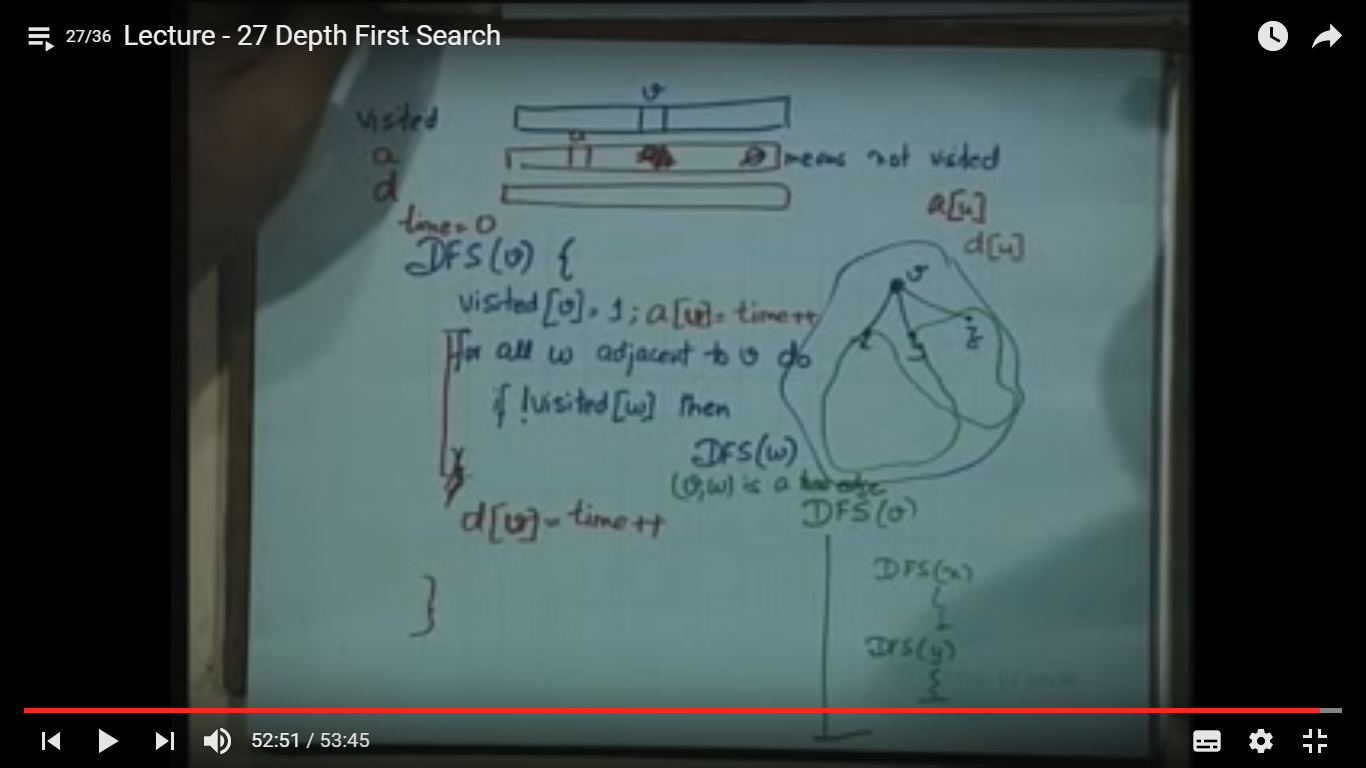 27/36 Lecture - 27 Depth First Search
visited
v
a
u
0 means not visited
d
a[u]
d[u]
time = 0
DFS(v) {
v
visited[v] = 1; a[v] = time++
x y z
for all w adjacent to v do
if !visited[w] then
DFS(w)
(v,w) is a tree edge
d[v] = time++
}
DFS(v)
DFS(x)
DFS(y)
52:51 / 53:45